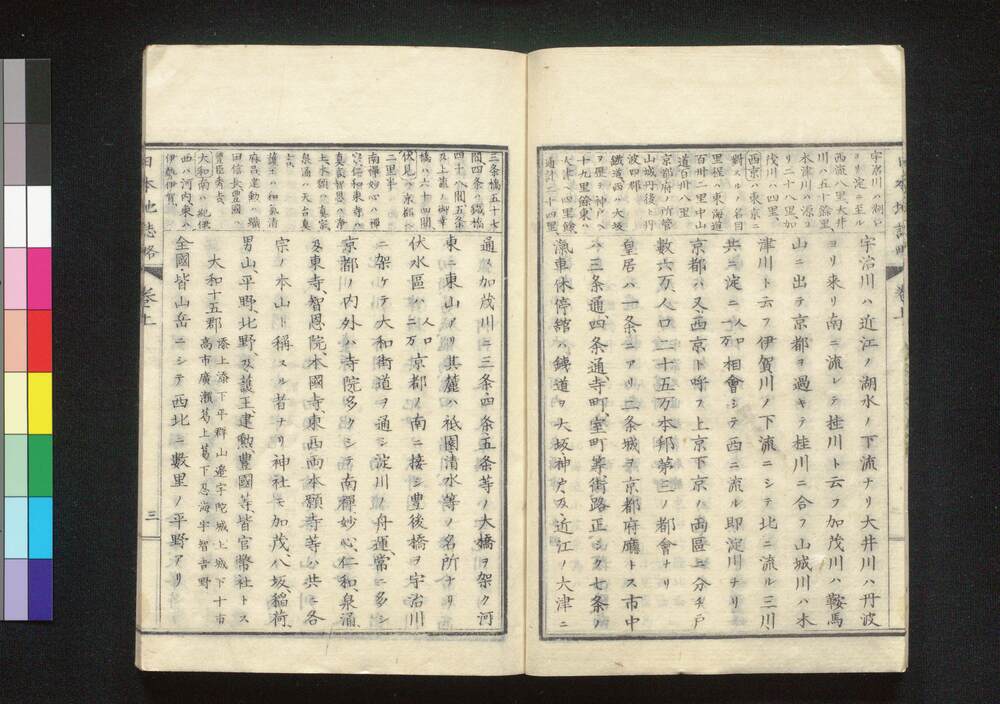 宇治川ハ湖口
ヨリ淀ニ至ル
西流八里大井
川ハ五十餘里
木津川ハ源ヨ
リ二十八里加
茂川ハ四里、
西京ハ東京ニ
對スルノ名目
里程ハ東海道
百卅二里中山
道百卅八里
京都府ノ所管
山城丹後ト丹
波四郡
鐵道西ハ大坂
ヲ歴テ神戸ヘ
十九里餘東ハ
大津ヘ四里餘
通計二十四里
宇治川ハ近江ノ湖水ノ下流ナリ大井川ハ丹波
ヨリ来リ南ニ流レテ桂川ト云フ加茂川ハ鞍馬
山ニ出テ京都ヲ過キテ桂川ニ合フ山城川ハ木
津川ト云フ伊賀川ノ下流ニシテ北ニ流ル三川、
共ニ淀ニ人口一万相會シテ西ニ流ル即淀川ナリ
京都ハ又西京ト呼フ上京下京ハ両區ニ分チ戸
數六万、人口二十五万本邦第三ノ都會ナリ
皇居ハ一条ニアリ二条城ヲ京都府廳トス市中
ハ三条通四条通寺町、室町等街路正シク七条ノ
滊車休停舘ハ鐵道ヲ大坂神戸及近江ノ大津ニ
日本地誌略
卷上
三条橋五十七
間四条ハ鐵橋
四十八間五条
及上
橋ハ六十四間
伏見ハ京都ヘ
二里半
南禪妙心ハ禪
宗仁和東寺ハ
真言智恩ハ浄
土本願ハ真宗
泉涌ハ天台真
言
護王ハ和氣清
麻呂建勲ハ織
田信長豊國ハ
豊臣秀吉
大和南ハ紀伊
西ハ河内東ハ
伊勢伊賀
通ス加茂川ニ三条、四条、五条等ノ大橋ヲ架ク河
東ニ東山アリ其麓ハ祇園清水等ノ名所ナリ
伏水區ハ人口二万京都ノ南ニ接シ豊後橋ヲ宇治川
ニ架ケテ大和街道ヲ通シ淀川ノ舟運、常ニ多シ
京都ノ内外ハ寺院多クシテ南禪妙心、仁和、泉涌、
及東寺、智恩院、本國寺、東西両本願寺等ハ共ニ各
宗ノ本山ト稱スル者ナリ神社モ加茂、八坂、稲荷、
男山、平野、北野、及護王、建勲、豊國等、皆官幣社トス
大和十五郡
添上添下平群山邊宇陀城上城下十市
高市廣瀬葛上葛下忍海宇智吉野
全國皆山岳ニシテ西北ニ數里ノ平野アリ
日本地誌略
卷上
三